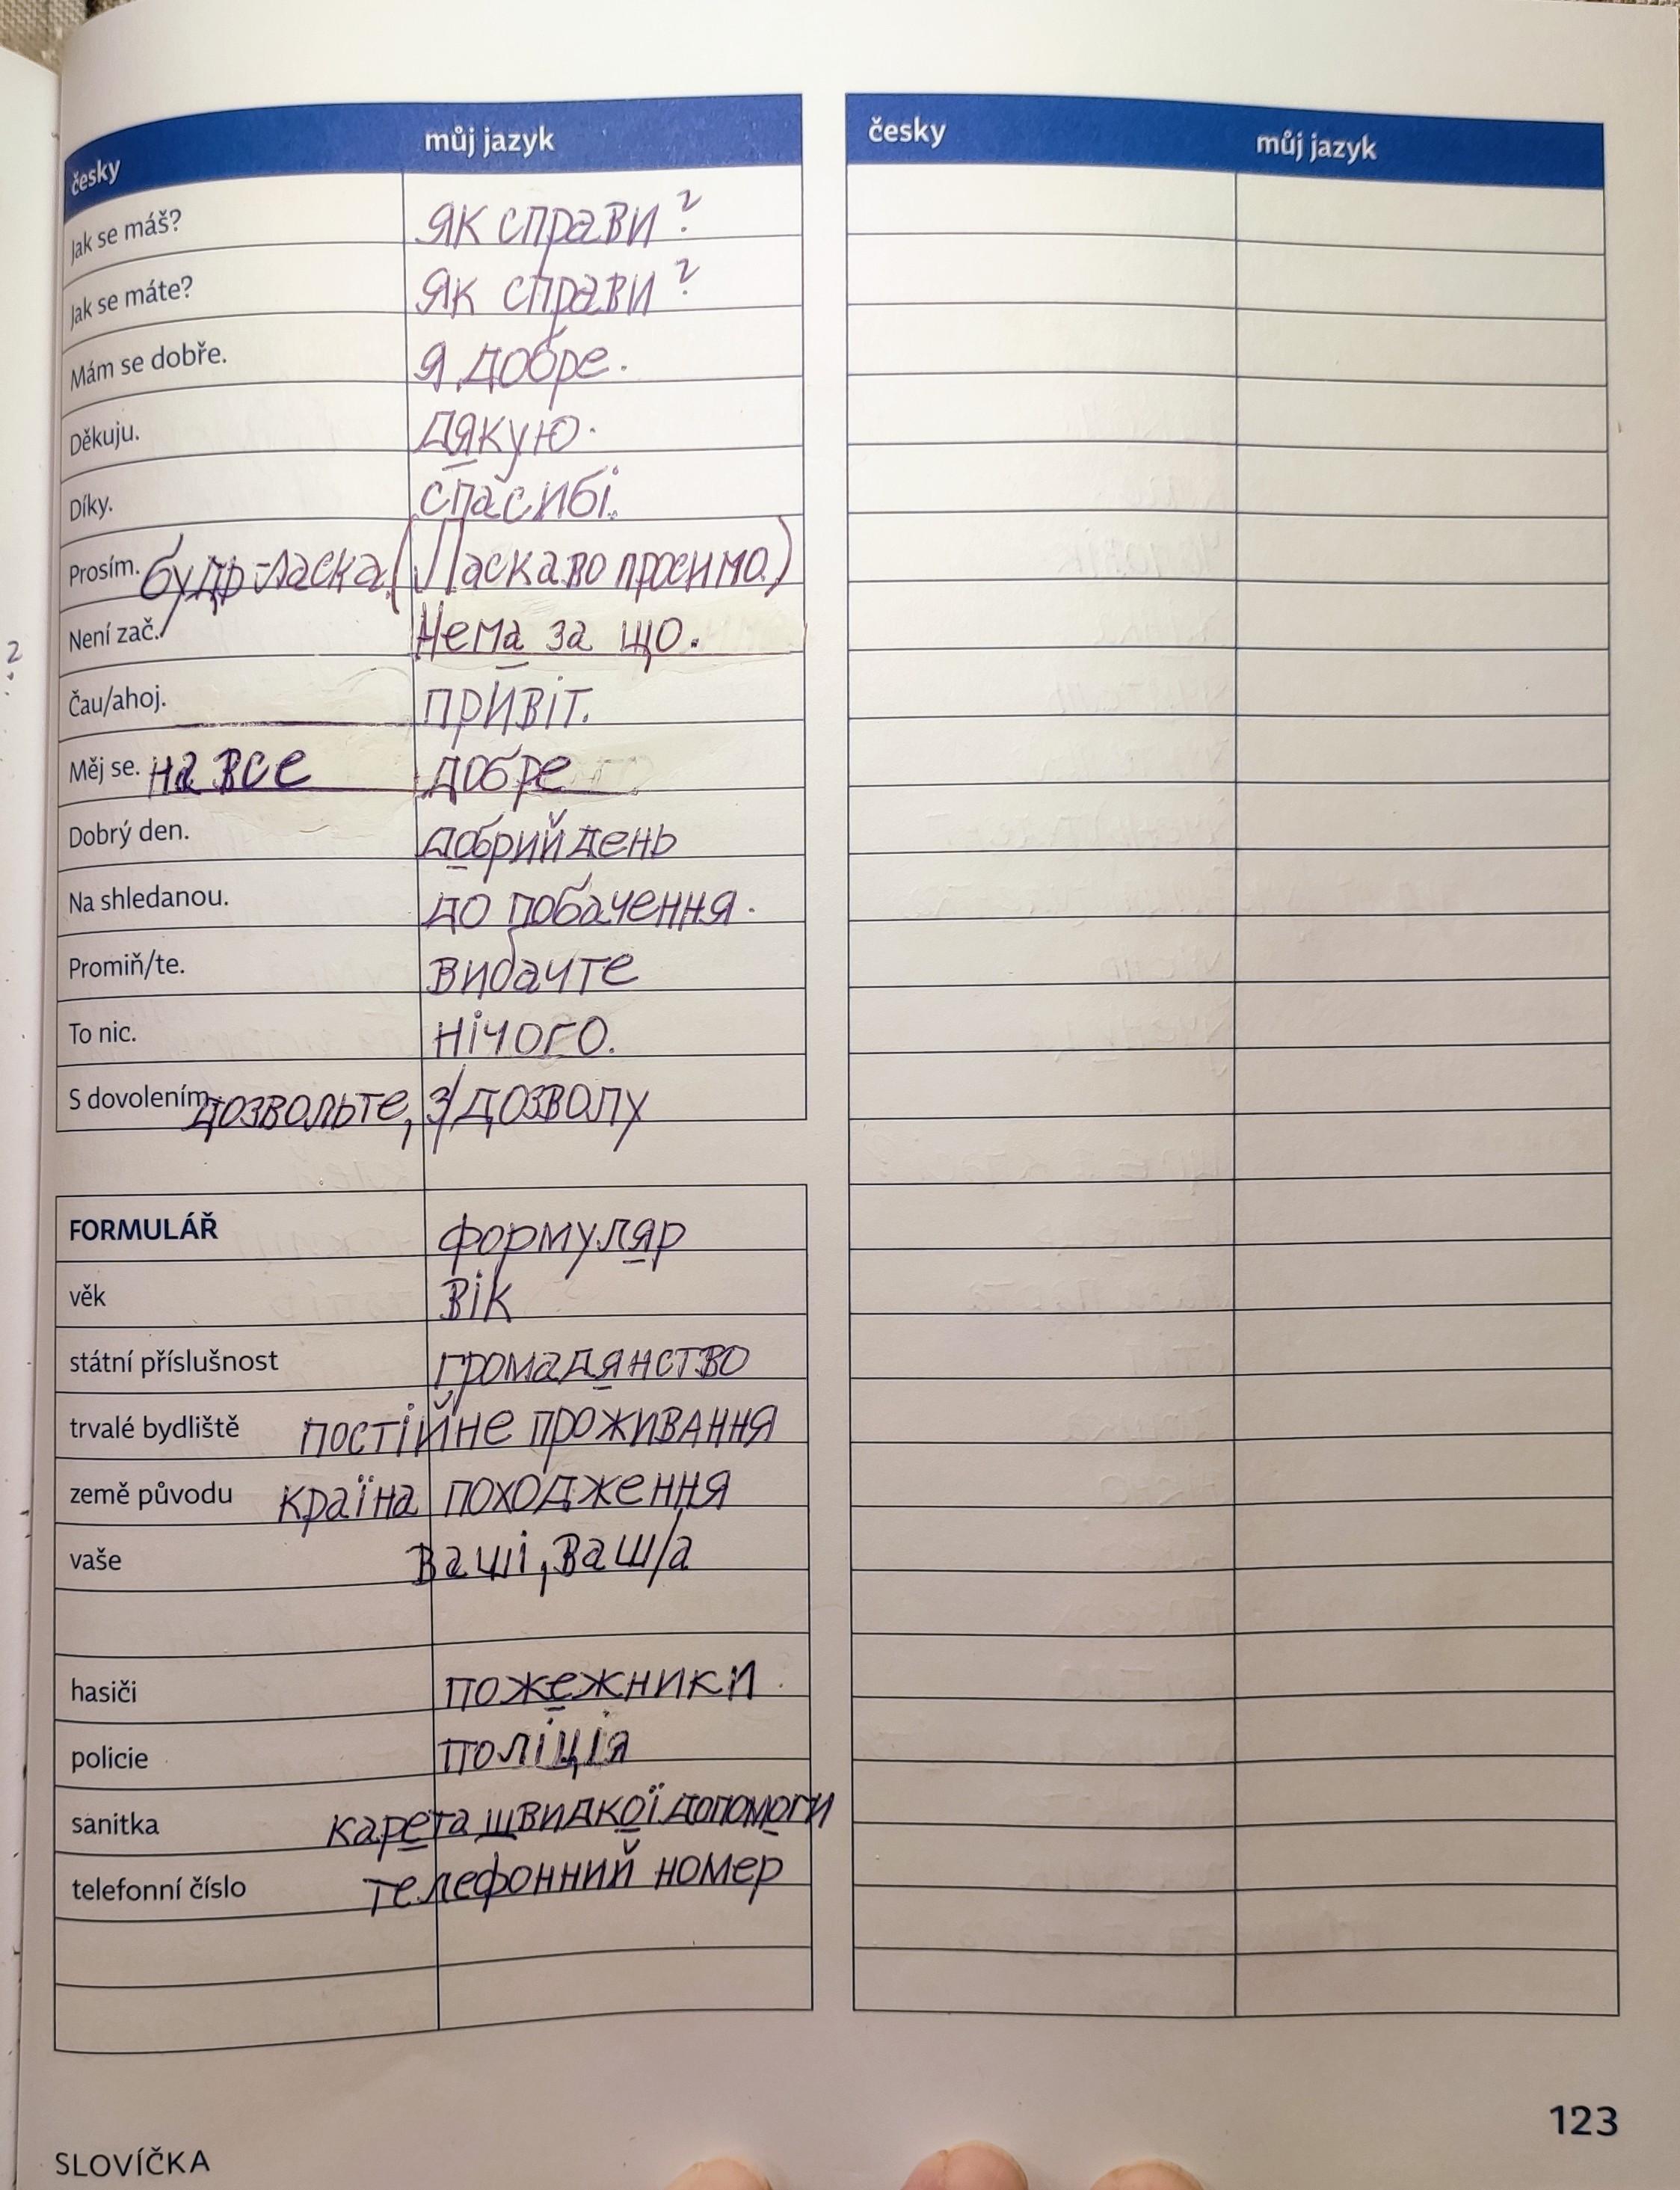 česky můj jazyk
Jak se máš? як справи?
Jak se máte? як справи?
Mám se dobře. я добре.
Děkuju. дякую.
Díky. спасибі.
Prosím. будь-ласка. (Ласкаво просимо)
Není zač. Нема за що.
Čau/ahoj. привіт.
Měj se. на все добре
Dobrý den. добрий день
Na shledanou. до побачення.
Promiň/te. вибачте
To nic. нічого.
S dovolením. дозвольте, з/дозволу
FORMULÁŘ формуляр
věk вік
státní příslušnost громадянство
trvalé bydliště постійне проживання
země původu країна походження
vaše ваші, ваш/а
hasiči пожежники
policie поліція
sanitka карета швидкої допомоги
telefonní číslo телефонний номер
česky můj jazyk
SLOVÍČKA
123